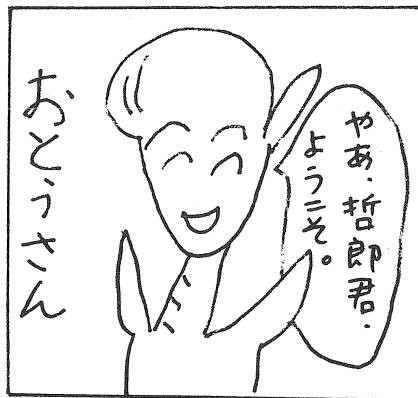 やあ、哲郎君、
ようこそ。
おとうさん